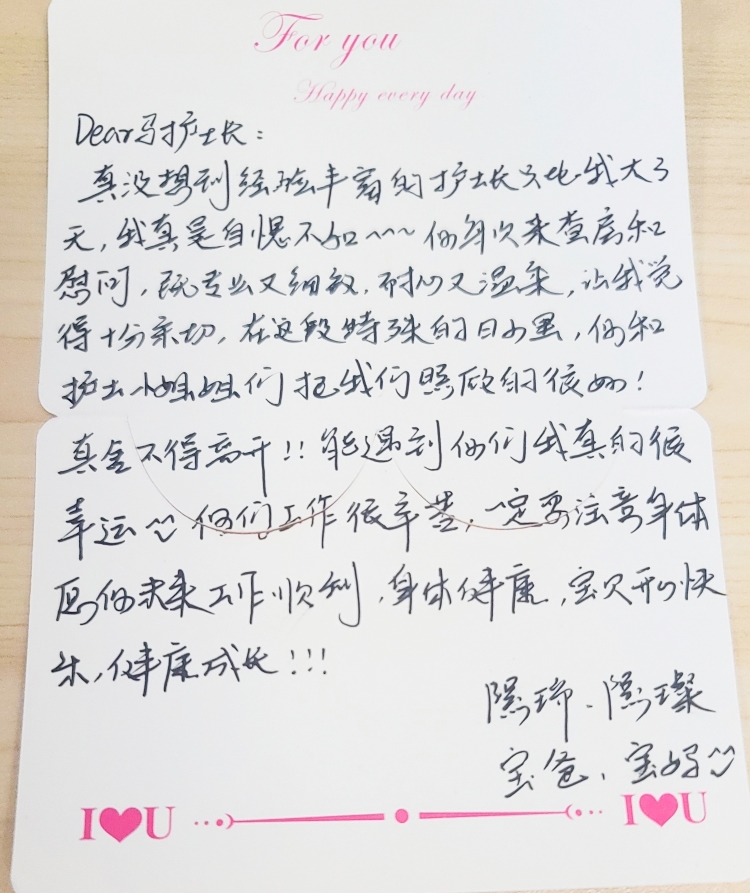 For you
Happy every day
Dear马护士长:
真没想到经验丰富的护士长只比我大3
天,我真是自愧不如~~~ 你每次来查房和
慰问,既专业又细致,耐心又温柔,让我觉
得十分亲切,在这段特殊的日子里,你和
护士小姐姐们把我们照顾的很好!
真舍不得离开!!能遇到你们我真的很
幸运 你们工作很辛苦,一定要注意身体
愿你未来工作顺利,身体健康,宝贝开心快
乐,健康成长!!!
瑞、璨
宝爸、宝妈
I❤U I❤U